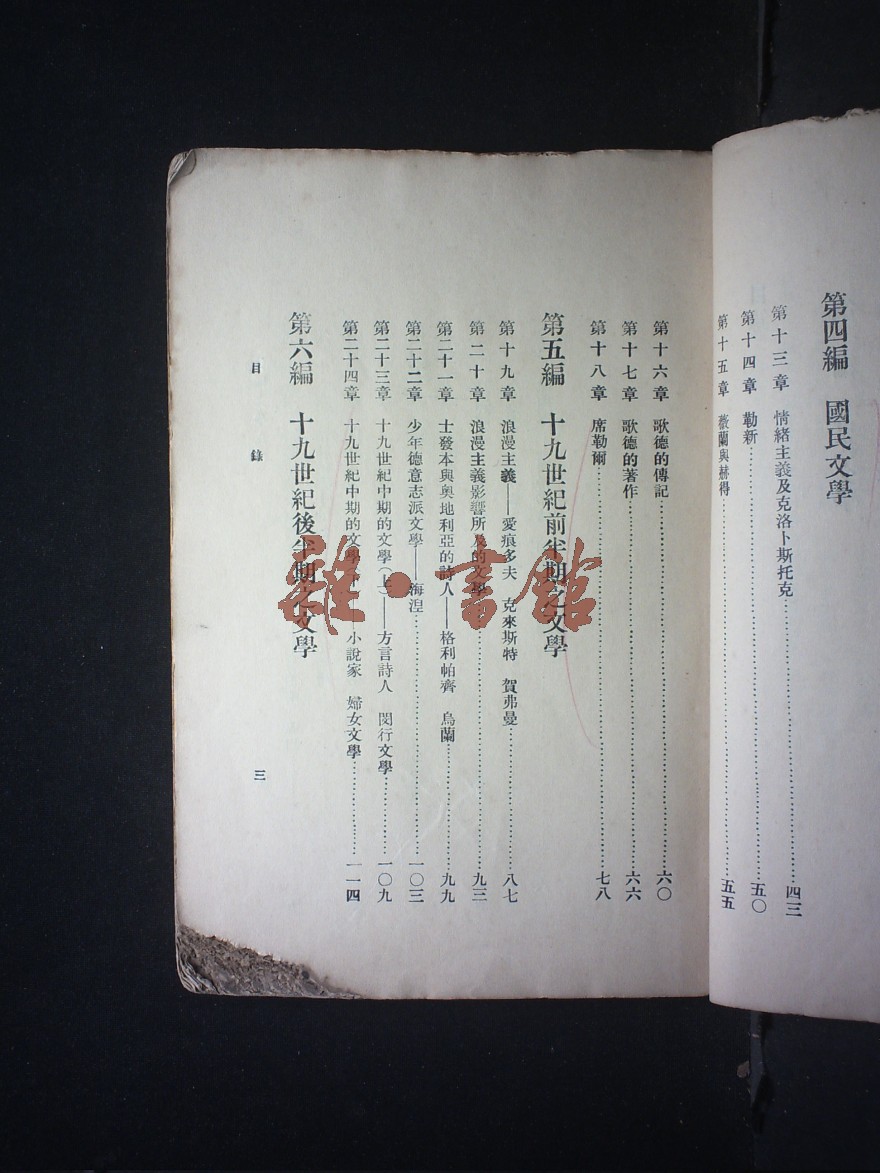 第四編　國民文學
第十三章　情緒主義及克洛卜斯托克…………四三
第十四章　勒新…………五〇
第十五章　薇蘭與赫得…………五五
第十六章　歌德的傳記…………六〇
第十七章　歌德的著作…………六六
第十八章　席勒爾…………七八
第五編　十九世紀前半期之文學
第十九章　浪漫主義——愛痕多夫　克來斯特　賀弗曼…………八七
第二十章　浪漫主義影響所及的文學…………九三
第二十一章　士發本與奧地利亞的詩人——格利帕齊　烏蘭…………九九
第二十二章　少年德意志派文學——海涅…………一〇三
第二十三章　十九世紀中期的文學(上)——方言詩人　閔行文學…………一〇九
第二十四章　十九世紀中期的文學　小說家　婦女文學…………一一四
第六編　十九世紀後半期之文學
目錄
三
雜·書館